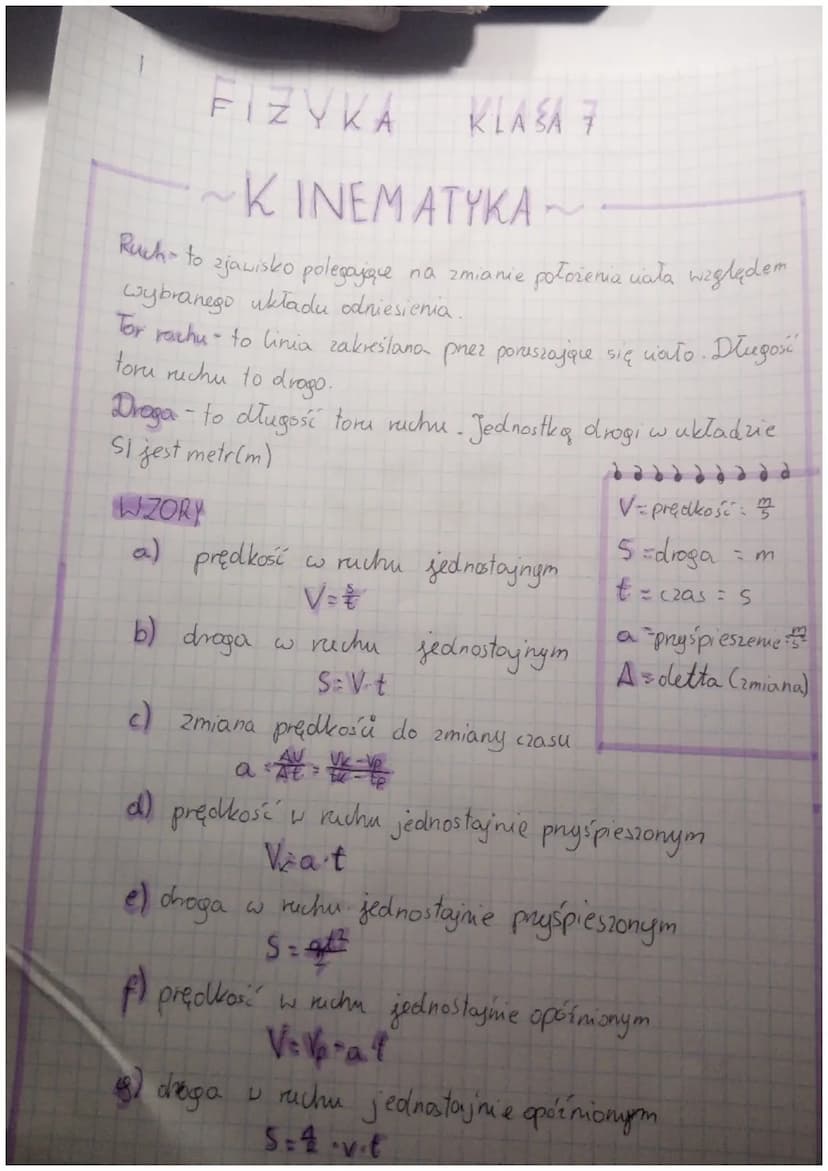 1
FIZYKA KLASA 7
~KINEMATYKA~
Ruch- to zjawisko polegające na zmianie położenia ciała względem
wybranego układu odniesienia.
Tor ruchu- to linia zakreślana przez poruszające się ciało. Długość
toru ruchu to droga.
Droga- to długość toru ruchu. Jednostką drogi w układzie
SI jest metr(m)
WZORY
a) prędkość w ruchu jednostajnym
V=s/t
b) droga w ruchu jednostajnym
S=V·t
c) zmiana prędkości do zmiany czasu
a=ΔV/Δt=Vk-Vp/tk-tp
d) prędkość w ruchu jednostajnie przyśpieszonym
V=a·t
e) droga w ruchu jednostajnie przyśpieszonym
S=at²/2
f) prędkość w ruchu jednostajnie opóźnionym
V=Vp-a·t
g) droga w ruchu jednostajnie opóźnionym
S=1/2·v·t
V=prędkość=m/s
S=droga=m
t=czas=s
a=przyśpieszenie=m/s²
Δ=delta (zmiana)